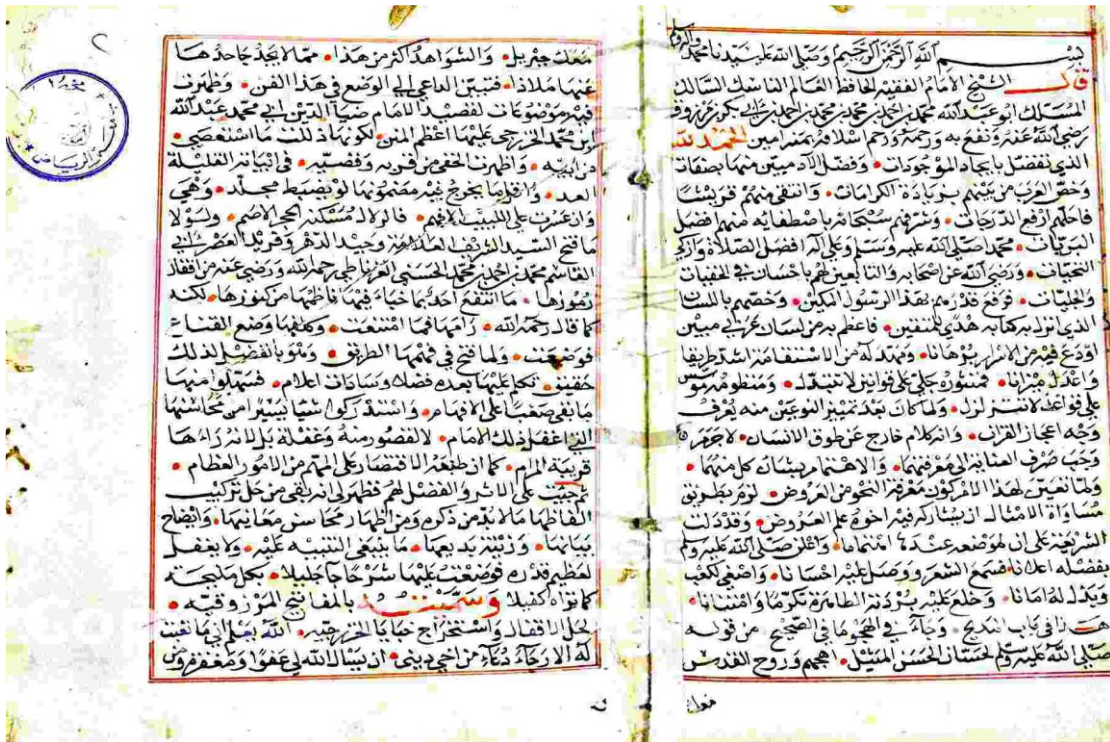 بسم الله الرحمن الرحيم وصلى الله على سيدنا محمد
قال الشيخ الامام الفقيه الحافظ العالم الناسك السالك
المسلك ابو عبد الله محمد بن احمد بن محمد بن محمد بن احمد بن ابي بكر بن مرزوق
رضي الله عنه ونفع به ورحمه ورحم اسلافه بمنه امين الحمد لله
الذي تفضل بايجاد الموجودات وفضل الآدميين منها بصفات
وخص العرب من بينهم بزيادة الكرامات وانتقى منهم قريشا
فاحلهم ارفع الدرجات وشرفهم سبحانه باصطفائه منهم افضل
البريات محمد صلى الله عليه وسلم وعلى آله افضل الصلاة وازكى
التحيات ورضي الله عن اصحابه والتابعين لهم باحسان في الخفيات
والجليات فرفع قدرهم بهذا الرسول المكين وخصهم باللسان
الذي انزل به كتابه هدى للمتقين فاعظم به من لسان عربي مبين
اودع فيه من الاسرار برهانا ومهد له من الاستقامة اشد طريقا
واعدل ميزانا فمنثوره جلي على قوانين لا تتبدل ومنظومه مؤسس
على قواعد لا تتزلزل ولما كان بعد تمييز النوعين منه يعرف
وجه اعجاز القران وانه كلام خارج عن طوق الانسان لا جرم
وجب صرف العناية الى معرفتهما والاهتمام بشان كل منهما
ولما تعين لهذا الامر كون معرفة النحو من العروض لزم بطريق
مساواة الامثال ان يشاركه فيه اخوه علم العروض وقد دلت
الشريعة على ان لموضعه عندها اهتماما واعلن صلى الله عليه وسلم
بفضله اعلانا فسمع الشعر ووصل عليه احسانا واصغى لكعب
وبذل له امانا وخلع عليه بردته الطاهرة تكرما وامتنانا
هذا في باب المديح وجاء في الهجو ما في الصحيح من قوله
صلى الله عليه وسلم لحسان الحسن المقيل اهجهم وروح القدس
معك
معك جبريل والشواهد اكثر من هذا مما لا يجد جاحدها
عنها ملاذا فتبين الداعي الى الوضع في هذا الفن وظهرت
فيه موضوعات لقصيد الامام ضياء الدين ابي محمد عبد الله
ابن محمد الخزرجي عليها اعظم المنن لكونها ذللت ما استعصى
من ابيه واظهرت الخفي من قريبه وقصيه في ابياته القليلة
العدد واقلها يخرج غير مضمونها لو يضبط مجلد وهي
وان عسرت على اللبيب الافهم فالزلال مسكنه الحجر الاصم ولولا
ما فتح السيد الشريف العلامة وحيد الدهر وفريد العصر ابي
القاسم محمد بن احمد بن محمد الحسني الغرناطي رحمه الله ورضي عنه من اقفال
رموزها ما انتفع احد بما خباه فيها ناظمها من كنوزها لكنه
كما قال رحمه الله رامها فما امتنعت وكلفها وضع القناع
فوضعت ولما فتح في فهمها الطريق وهو بالفضل لذلك
حقيق تكلم عليها بعده فضلاء وسادات اعلام فسهلوا منها
ما بقي صعبا على الافهام واستدركوا شيا يسيرا من محاسنها
التي اغفل ذلك الامام لا لقصور منه وغفلة بل لانه رءاها
قريبة المرام كما ان طبعه الاقتصار على المهم من الامور العظام
ثم جئت على الاثر والفضل لهم فظهر لي انه بقي من حل تركيب
الفاظها ما لا بد من ذكره ومن اظهار محاسن معانيها وايضاح
بيانها وزينة بديعها ما ينبغي التنبيه عليه ولا يغفل
لعظيم قدره فوضعت عليها شرحا جليلا بكل مليحة
كما تراه كفيلا وسميته بالمفاتيح المرزوقيه
لحل الاقفال واستخراج خبايا الخزرجيه الله يعلم اني ما تعنت
له الا رجاء دعاء من اخي ديني ان يسال الله لي عفوا ومغفرة وان